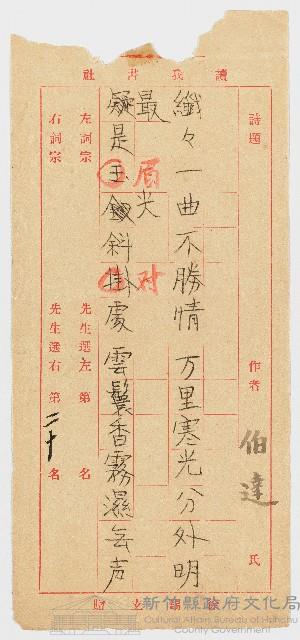 讀我書社
詩題 作者 伯達 氏
纖々一曲不勝情 万里寒光分外明
最 眉尖 对
疑是玉釵斜掛處 雲鬟香霧濕无声
左詞宗 先生選左第 名
右詞宗 先生選右第二十名
新竹縣政府文化局
Cultural Affairs Bureau of Hsinchu
County Government